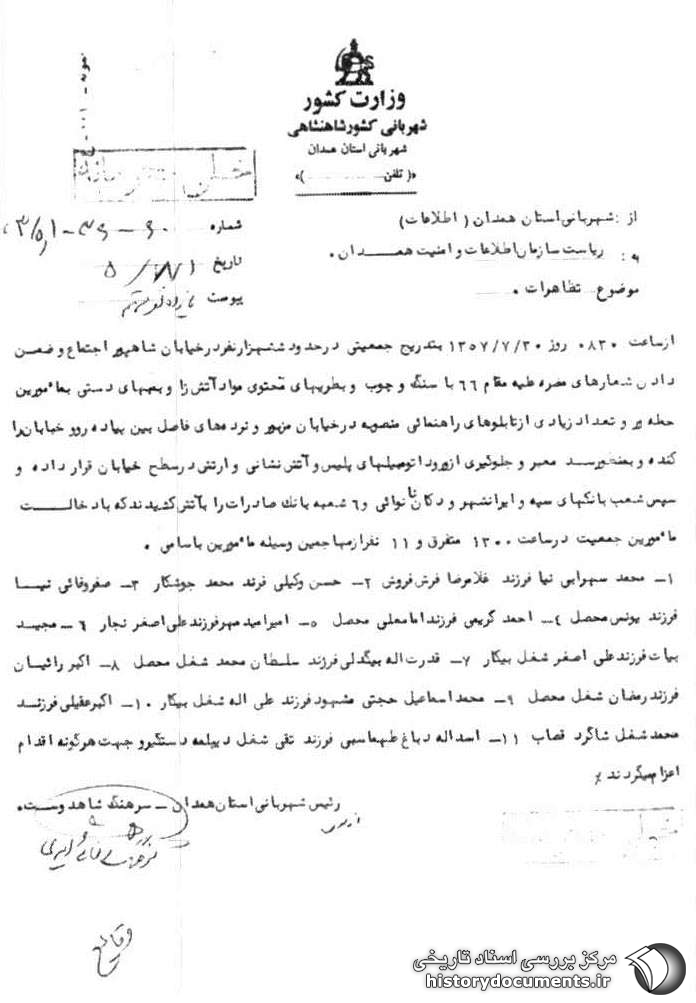 وزارت کشور
شهربانی کشور شاهنشاهی
شهربانی استان همدان
«( تلفن ............... )»
نمونه -
خیلی محرمانه
شماره
تاریخ
پیوست
از : شهربانی استان همدان ( اطلاعات )
به : ریاست سازمان اطلاعات و امنیت همدان .
موضوع تظاهرات .
از ساعت ۰۸۳۰ روز ۱۳۵۷/۷/۳۰ بتدریج جمعیتی در حدود ششهزار نفر در خیابان شاهپور اجتماع و ضمن
دادن شعارهای مضره علیه مقام ۶۶ با سنگ و چوب و بطریهای محتوی مواد آتش زا و بمبهای دستی بمأمورین
حمله ور و تعداد زیادی از تابلوهای راهنمائی منصوبه در خیابان مزبور و نرده های فاصل بین پیاده رو و خیابان را
کنده و بمنظور سد معبر و جلوگیری از ورود اتومبیلهای پلیس و آتش نشانی و ارتش در سطح خیابان قرار داده و
سپس شعب بانکهای سپه و ایرانشهر و دکان نانوائی و ۶ شعبه بانک صادرات را بآتش کشیدند که با دخالت
مأمورین جمعیت در ساعت ۱۳۰۰ متفرق و ۱۱ نفر از مهاجمین وسیله مأمورین باسامی .
۱- محمد سهرابی نیا فرزند غلامرضا فرش فروش ۲- حسن وکیلی فرزند محمد جوشکار ۳- صفر وفائی نیا
فرزند یونس محصل ۴- احمد کریمی فرزند امامعلی محصل ۵- امیر امید مهر فرزند علی اصغر نجار ۶- مجید
بیات فرزند علی اصغر شغل بیکار ۷- قدرت اله بیگدلی فرزند سلطان محمد شغل محصل ۸- اکبر رائیان
فرزند رمضان شغل محصل ۹- محمد اسماعیل حجتی مشهود فرزند علی اله شغل بیکار ۱۰- اکبر عقیلی فرزند
محمد شغل شاگرد قصاب ۱۱- اسداله دباغ طهماسبی فرزند تقی شغل دیپلمه دستگیر و جهت هرگونه اقدام
اعزام میگردند
رئیس شهربانی استان همدان - سرهنگ شاهد وست.
وقایع
مرکز بررسی اسناد تاریخی
historydocuments.ir